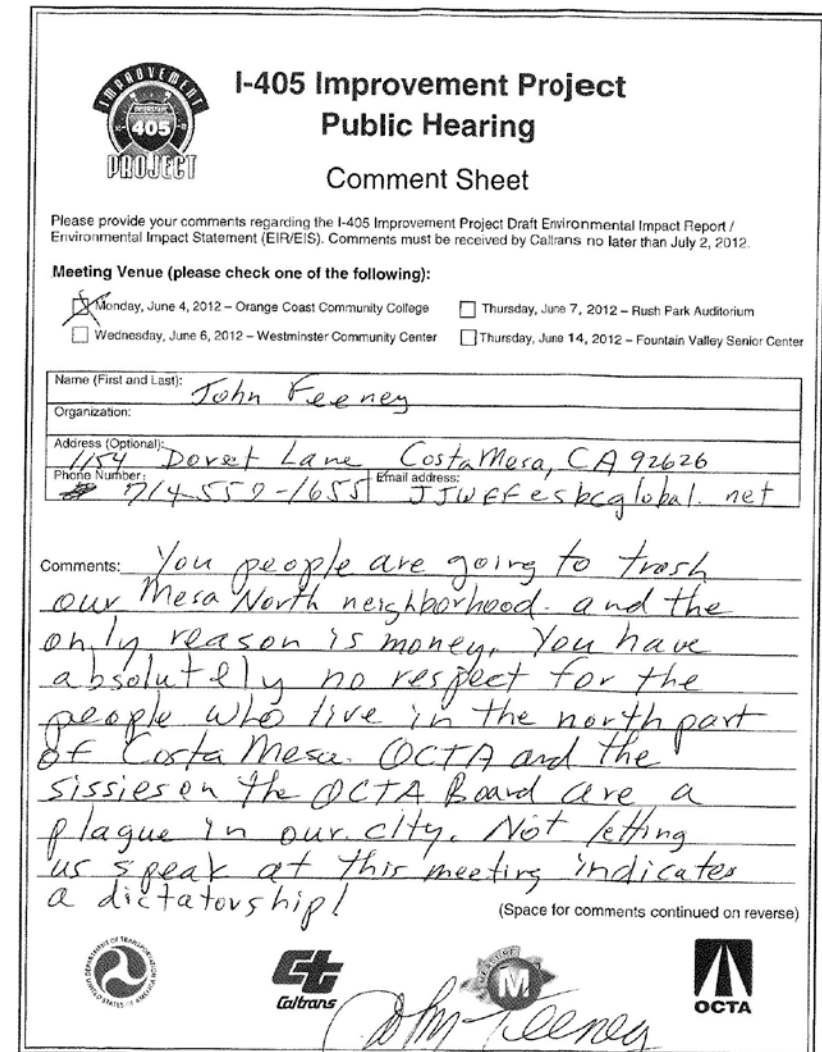 IMPROVEMENT
405
PROJECT
I-405 Improvement Project
Public Hearing
Comment Sheet
Please provide your comments regarding the I-405 Improvement Project Draft Environmental Impact Report /
Environmental Impact Statement (EIR/EIS). Comments must be received by Caltrans no later than July 2, 2012.
Meeting Venue (please check one of the following):
Monday, June 4, 2012 – Orange Coast Community College
Thursday, June 7, 2012 – Rush Park Auditorium
Wednesday, June 6, 2012 – Westminster Community Center
Thursday, June 14, 2012 – Fountain Valley Senior Center
Name (First and Last): John Feeney
Organization:
Address (Optional): 1154 Dorset Lane Costa Mesa, CA 92626
Phone Number: 714-557-1655 Email address: JJWFF@sbcglobal.net
Comments: You people are going to trash
our Mesa North neighborhood. and the
only reason is money. You have
absolutely no respect for the
people who live in the north part
of Costa Mesa. OCTA and the
sissies on the OCTA Board are a
plague in our city. Not letting
us speak at this meeting indicates
a dictatorship!
(Space for comments continued on reverse)
DEPARTMENT OF TRANSPORTATION
UNITED STATES OF AMERICA
Caltrans
MEASURE
M
OCTA
John Feeney